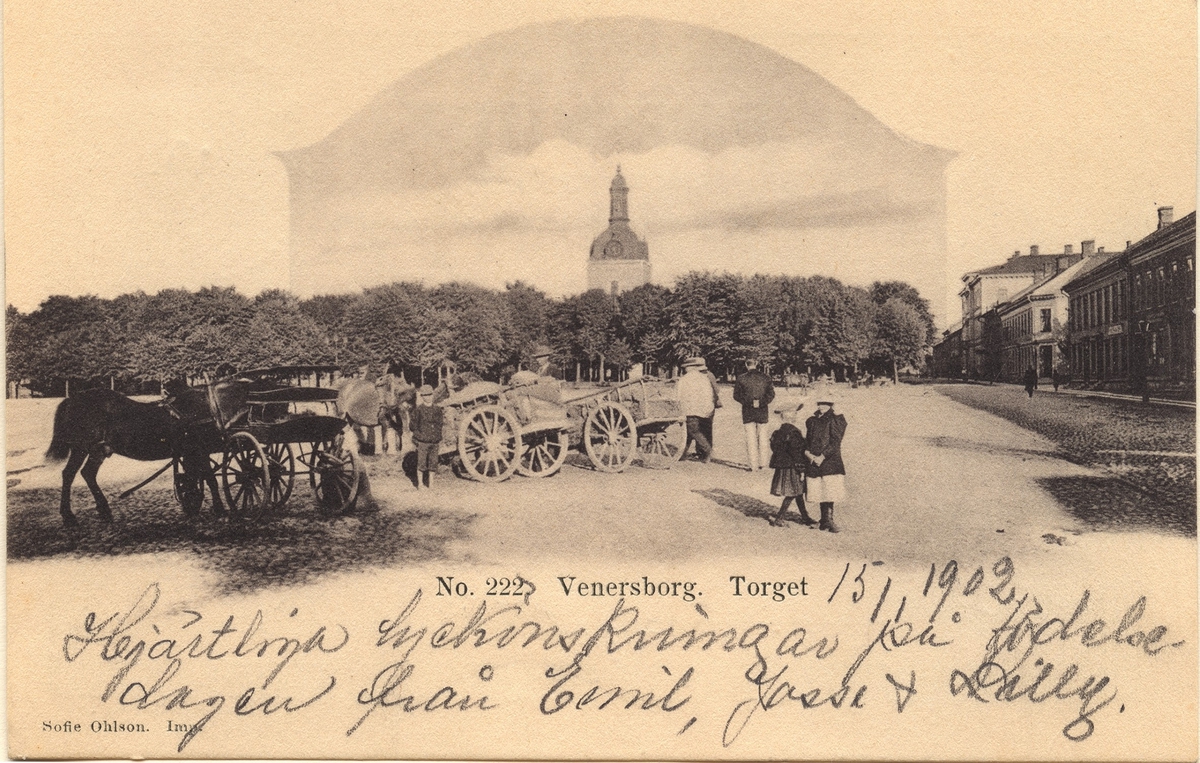 No. 222. Venersborg. Torget 15/1 1902.
Hjärtliga lyckönskningar på födelse-
dagen från Emil, Josse & Dilly.
Sofie Ohlson. Imp.